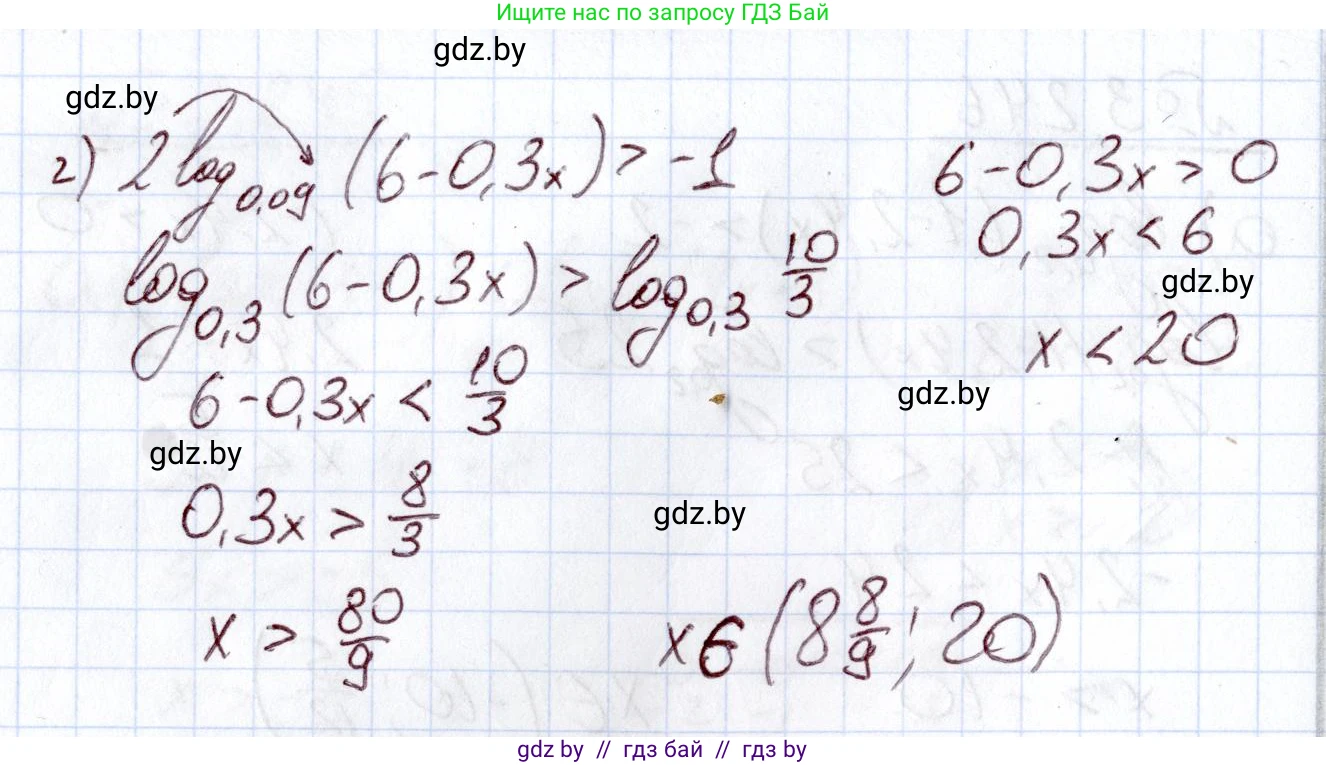 Ищите нас по запросу ГДЗ Бай
gdz.by
gdz.by
г) 2 log_{0,09} (6 - 0,3x) > -1
6 - 0,3x > 0
0,3x < 6
log_{0,3} (6 - 0,3x) > log_{0,3} 10/3
gdz.by
x < 20
6 - 0,3x < 10/3
gdz.by
gdz.by
0,3x > 8/3
gdz.by
x > 80/9
x ∈ (8 8/9; 20)
gdz.by // гдз бай // гдз by